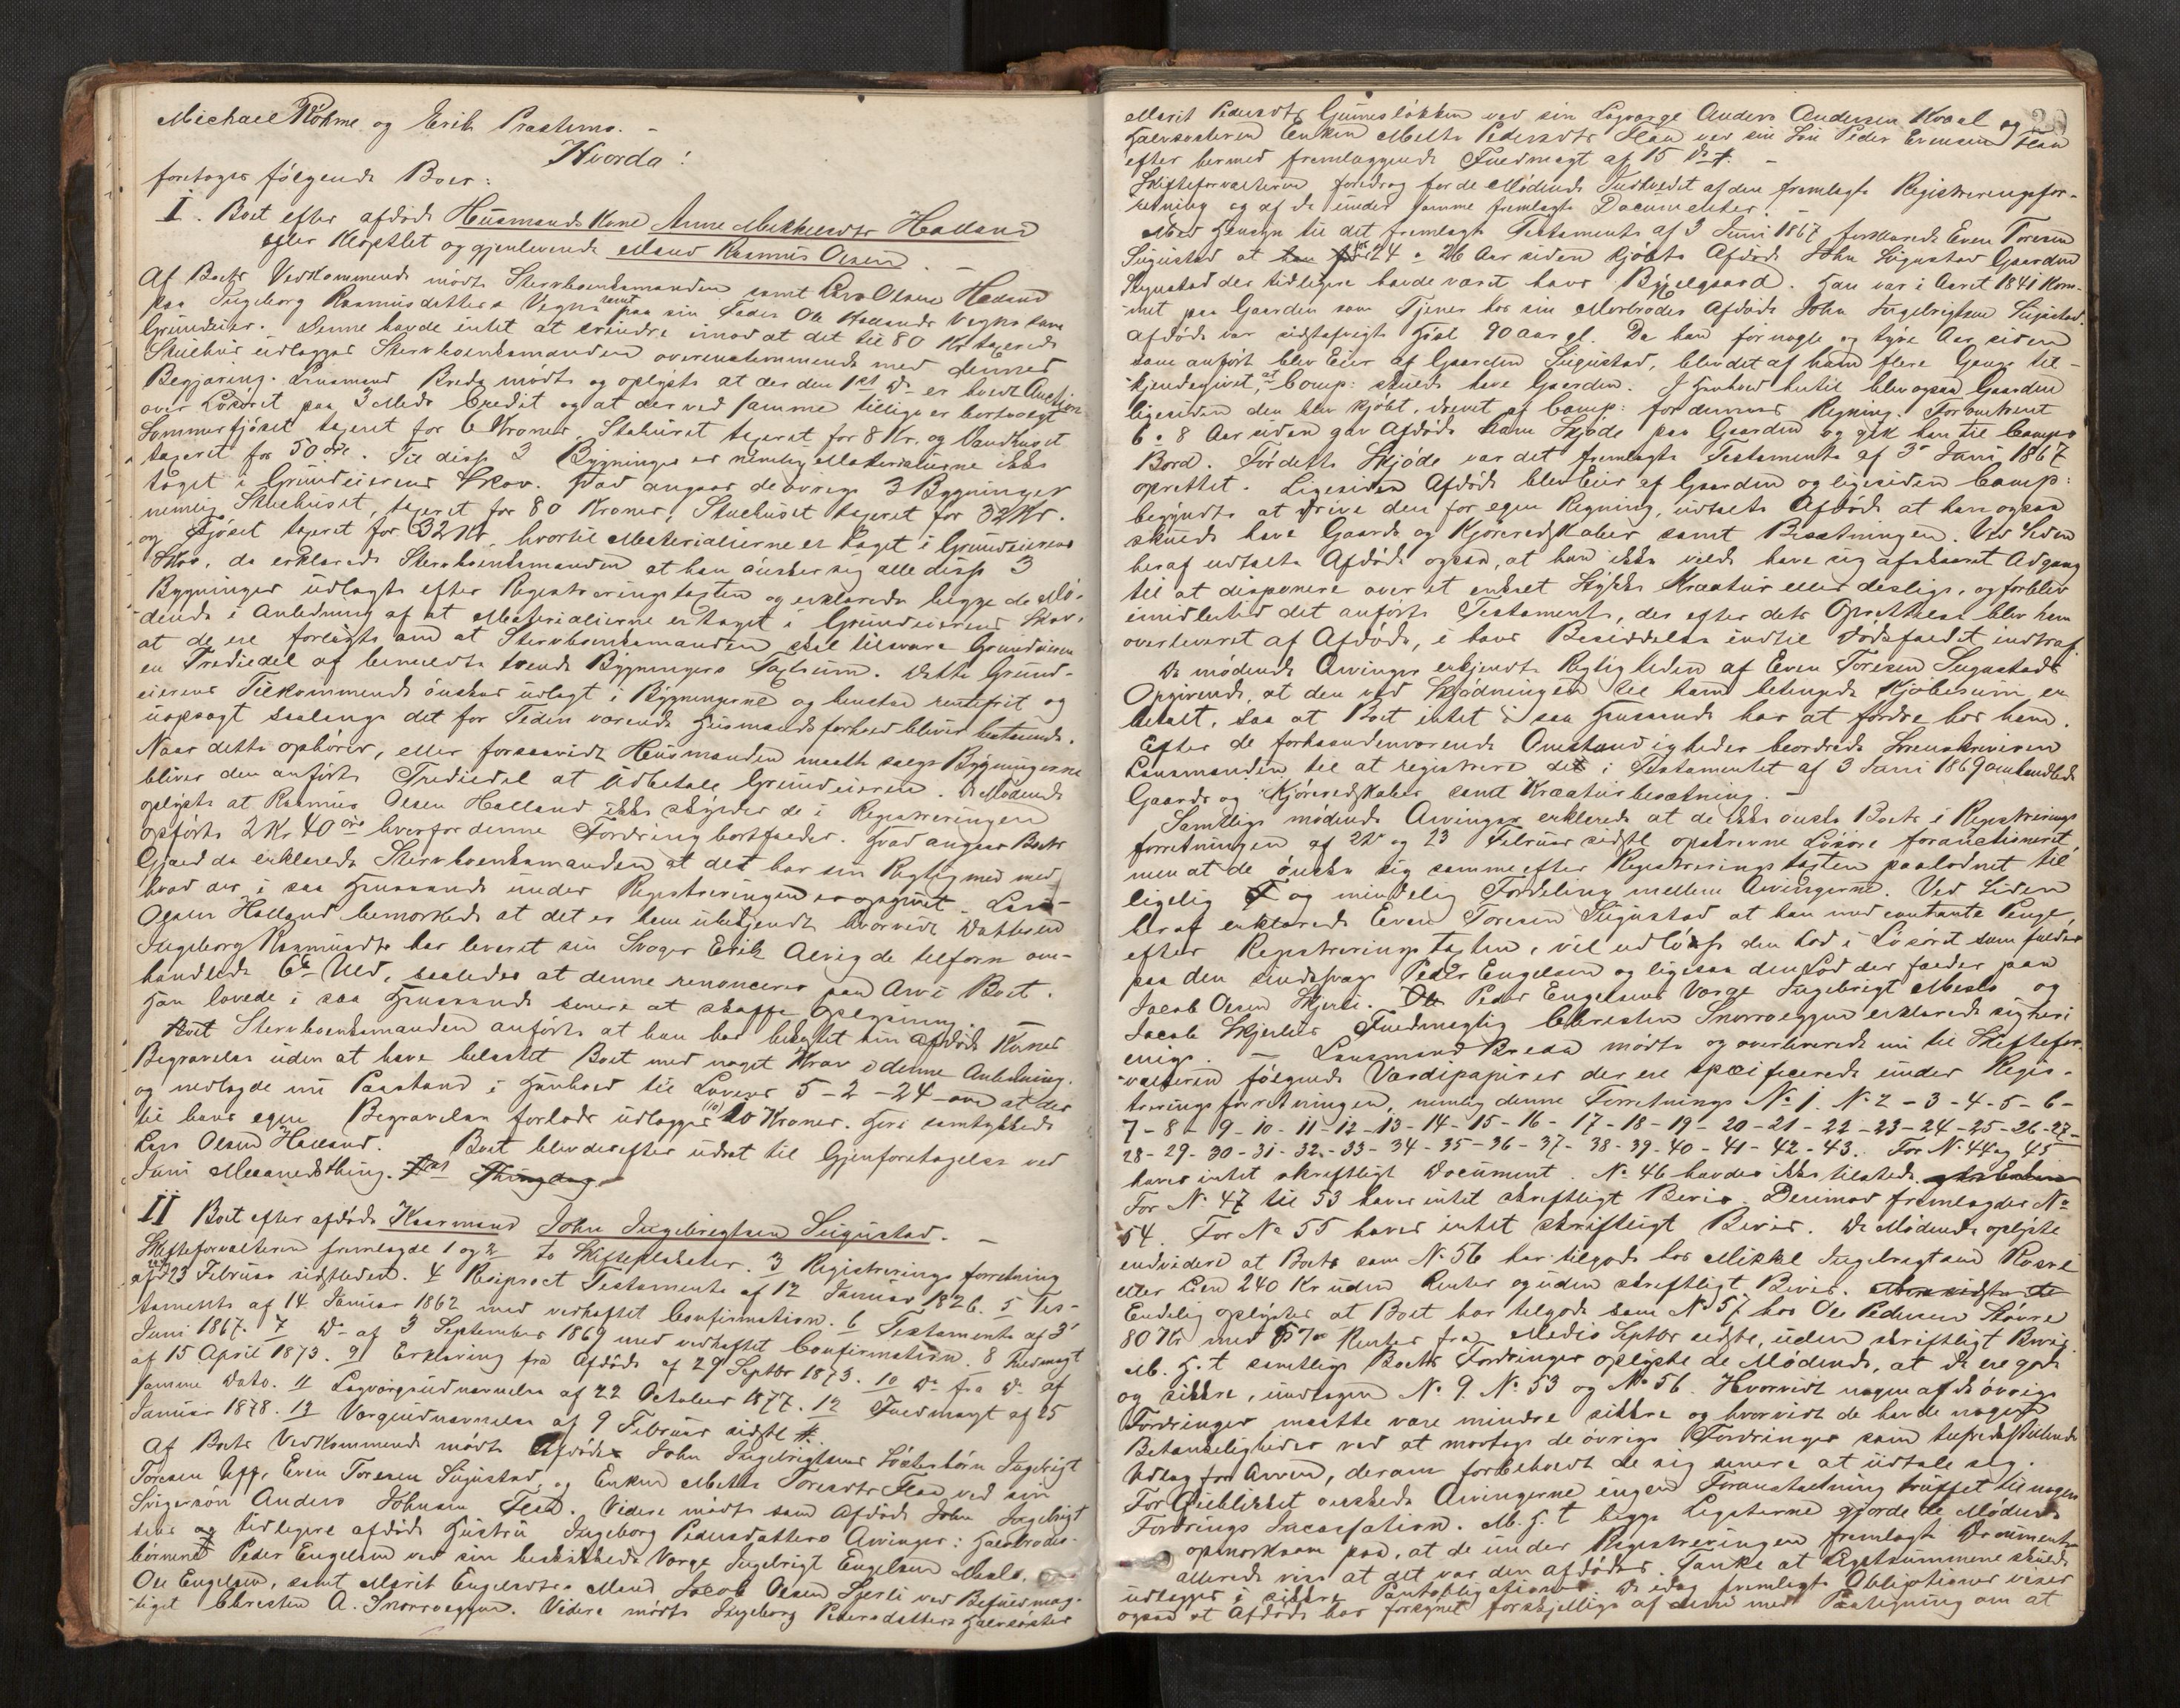 Michael Röhme og Erik Prestmo. -
Hvorda!
foretoges følgende Boer:
I. Boet efter afdøde Husmands Kone Anne Mikkelsdtr Halland
og gjenlevende Mand Rasmus Olsen. -
Af Boets Vedkommende mødte Stervboenkemanden samt Lars Olsen Halland
paa Ingeborg Rasmusdatters Vegne samt paa sin Fader Ole Hallands Vegne som
Grundeier. Denne havde intet at erindre imod at det til 80 Kr taxerede
Stuehus udlægges Stervboenkemanden overensstemmende med dennes
Begjæring. Lensmand Breda mødte og oplyste at der den 1ste ds er holdt Auction
over Løsøret paa 3 Mdrs Credit og at der ved samme tillige er bortsolgt
Sommerfjøset taxeret for 6 Kroner, Stabüret taxeret for 8 Kr. og Vandhuset
taxeret for 50 øre. Til disse 3 Bygninger er nemlig Materialierne ikke
taget i Grundeierens Skov. Hvad angaar de øvrige 3 Bygninger
nemlig Stuehuset, taxeret for 80 Kroner, Stuehuset taxeret for 32 Kr.
og Fjøset taxeret for 32 Kr, hvortil Materialierne er taget i Grundeierens
Skov, da erklærede Stervboenkemanden at han ønsker sig alle disse 3
Bygninger udlagte efter Registreringstaxten og erklærede begge de Mø-
dende i Anledning af at Materialierne er taget i Grundeierens Skov,
at de ere forligte om at Stervboenkemanden skal tilsvare Grundeieren
en Trediedel af bemeldte trende Bygningers Taxtsum. Dette Grund-
eierens Tilkommende ønskes udlagt i Bygningerne og henstaar rentefrit og
uopsagt saalænge det for Tiden værende Husmandsforhold bliver bestaaende.
Naar dette ophører, eller forsaavidt Husmanden maatte sælge Bygningerne
bliver den anførte Trediedel at udbetale Grundeieren. De Mødende
oplyste at Rasmus Olsen Halland ikke skylder de i Registreringen
opførte 2 Kr 40 øre hvorfor denne Fordring bortfalder. Hvad angaar Boets
Gjæld da erklærede Stervboenkemanden at det har sin Rigtighed med
hvad der i saa Henseende under Registreringen er opgivet. Lars
Olsen Halland bemærkede at det er ham ubekjendt hvorvidt Datteren
Ingeborg Rasmusdtr har leveret sin Svoger Erik Alvig de tilforn om-
handlede Uld, saaledes at denne renoncerer paa Arv i Boet.
Han lovede i saa Henseende senere at skaffe Oplysning. -
Stervboenkemanden anførte at han har bekostet sin afdøde Kones
Begravelse uden at have belastet Boet med noget Krav i denne Anledning.
og nedlagde nu Paastand i Henhold til Lovens 5-2-24 om at der
til hans egen Begravelse forlods udlægges (10) 10 Kroner. Heri samtykkede
Lars Olsen Halland. Boet blev derefter udsat til Gjenforetagelse ved
Juni Maanedsthing.
II Boet efter afdøde Kaarmand John Ingebrigtsen Sugustad. -
Skifteforvalteren fremlagde 1 og 2 to Skifteplakater. 3 Registrerings forretning
af 22 og 23 Februar sidstleden. 4 Resiproct Testamente af 12 Januar 1826. 5 Tes-
tamente af 14. Januar 1862 med vedhæftet Confirmation. 6 Testamente af 3'
Juni 1867. 7 Do af 3 September 1869 med vedhæftet Confirmation. 8 Fuldmagt
af 15 April 1873. 9 Erklæring fra Afdøde af 29 Septbr 1873. 10 Do fra Do af
samme Dato. 11 Lagværgeudnævnelse af 22 October 1877. 12 Fuldmagt af 25
Januar 1878. 12 Værgeudnævnelse af 9 Februar sidstl.
Af Boets Vedkommende mødte Afdøde John Ingebrigtsens Søsterbørn Ingebrigt
Toresen Uff, Even Toresen Sugustad, og Enken Mette Toresdtr Flaa ved sin
Svigersøn Anders Johnsen Flaa. Videre mødte som Afdøde John Ingebrigt
sens og tidligere afdøde Hustru Ingeborg Pedersdatters Arvinger: Halvbroder-
børnene Peder Engelsen ved sin beskikkede Værge Ingebrigt Engelsen Meslo,
Ole Engelsen, samt Marit Engelsdtrs Mand Jacob Olsen Skjerli ved Befuldmæg-
tiget Christen A. Snorroeggen. Videre mødte Ingeborg Pedersdatters Halvsøster
Marit Pedersdtr Gunnesløkken ved sin Lagværge Anders Andersen Kvaal og
Halvsøsteren Enken Mette Pedersdtr Flaa ved sin Søn Peder Evensen Flaa
efter hermed fremlæggende Fuldmagt af 15 ds. -
Skifteforvalteren foredrog for de Mødende Indholdet af den fremlagte Registreringsfor-
retning og af de under samme fremlagte Documenter. -
Med Hensyn til det fremlagte Testamente af 3 Juni 1867 forklarede Even Toresen
Sugustad at for 24 a 26 Aar siden kjøbte Afdøde John Sugustad Gaarden
Sugustad der tidligere havde været hans Bygselgaard. Han var i Aaret 1841 kom-
met paa Gaarden som Tjener hos sin Morbroder Afdøde John Ingebrigtsen Sugustad.
Afdøde var sidstafvigte Høst 90 Aar gl. Da han for nogle og tyve Aar siden
som anført blev Eier af Gaarden Sugustad, blev det af ham flere Gange til-
kjendegivet, at Comp: skulde have Gaarden. I Henhold hertil blev ogsaa Gaarden
ligesiden den blev kjøbt, drevet af Comp: for dennes Regning. For omtrent
6 a 8 Aar siden gav Afdøde ham Skjøde paa Gaarden og gik han til Comps
Bord. Før dette Skjøde var det fremlagte Testamente af 3' Juni 1867
oprettet. Ligesiden Afdøde blev Eier af Gaarden og ligesiden Comp:
begyndte at drive den for egen Regning, udtalte Afdøde at han ogsaa
skulde have Gaards og Kjøreredskaber samt Besætningen. Ved Siden
heraf udtalte Afdøde ogsaa, at han ikke vilde have sig afskaaret Adgang
til at disponere over et enkelt Stykke Kreatur eller deslige, og forblev
imidlertid det anførte Testamente, der efter dets Oprettelse blev ham
overleveret af Afdøde, i hans Besiddelse indtil Dødsfaldet indtraf.
De mødende Arvinger erkjendte Rigtigheden af Even Toresen Sugustads
Opgivende, at den ved Skjødningen til ham betingede Kjøbesum, er
betalt, saa at Boet intet i saa Henseende har at fordre hos ham.
Efter de forhaandenværende Omstændigheder beordrede Sorenskriveren
Lensmanden til at registrere det i Testamentet af 3 Juni 1869 omhandlede
Gaards og Kjøreredskaber samt Kreaturbesætning. -
Samtlige mødende Arvinger erklærede at de ikke ønske Boets i Registrerings
forretningen af 22 og 23 Februar sidstl. opskrevne Løsøre forauctioneret,
men at de ønske sig samme efter Registreringstaxten paalodnet til
ligelig og mindelig Fordeling mellem Arvingerne. Ved Siden
heraf erklærede Even Toresen Sugustad at han med contante Penge,
efter Registreringstaxten, vil udløse den Lod i Løsøret som falder
paa den sindssvage Peder Engelsen og ligesaa den Lod der falder paa
Jacob Olsen Skjerli. Peder Engelsens Værge Ingebrigt Meslo og
Jacob Skjerlis Fuldmægtig Christen Snorroeggen erklærede sig heri
enige. - Lensmand Breda mødte og overleverede nu til Skiftefor-
valteren følgende Værdipapirer der ere specificerede under Regis-
treringsforretningen, nemlig denne Forretnings No 1. No 2 - 3 - 4 - 5 - 6 -
7 - 8 - 9 - 10 - 11 - 12 - 13 - 14 - 15 - 16 - 17 - 18 - 19 - 20 - 21 - 22 - 23 - 24 - 25 - 26 - 27 -
28 - 29 - 30 - 31 - 32 - 33 - 34 - 35 - 36 - 37 - 38 - 39 - 40 - 41 - 42 - 43. For No 44 og 45
haves intet skriftligt Document. No 46 havdes ikke tilstede.
For No 47 til 53 haves intet skriftligt Bevis. Derimod fremlagdes No
54. For No 55 haves intet skriftligt Bevis. De Mødende oplyste
endvidere at Boet som No 56 har tilgode hos Mikkel Ingebrigtsen
eller Lien 240 Kr uden Renter og uden skriftligt Bevis.
Endelig oplystes at Boet har tilgode som No 57 hos Ole Pedersen Støvre
80 Kr med 5% Renter fra Medio Septbr sidste, uden skriftligt Bevis.
M. H. t samtlige Boets Fordringer oplyste de Mødende, at de ere gode
og sikkre, undtagen No 9. No 53 og No 56. Hvorvidt nogen af de øvrige
Fordringer maatte være mindre sikkre og hvorvidt de havde nogen
Betænkeligheder ved at modtage de øvrige Fordringer som tilfredsstillende
Udlæg for Arven, derom forbeholdt de sig senere at udtale sig.
For Øieblikket ønskede Arvingerne ingen Foranstaltning truffet til nogen
Fordrings Incassation. M. H. t begge Legaterne gjorde de Mødende
opmærksom paa, at de under Registreringen fremlagte Documenter
allerede vise at det var den afdødes Tanke at Legatsummene skulde
udlægges i sikkre Pantobligationer. De idag fremlagte Obligationer viser
ogsaa at Afdøde har forsynet forskjellige af disse med Paategning om at